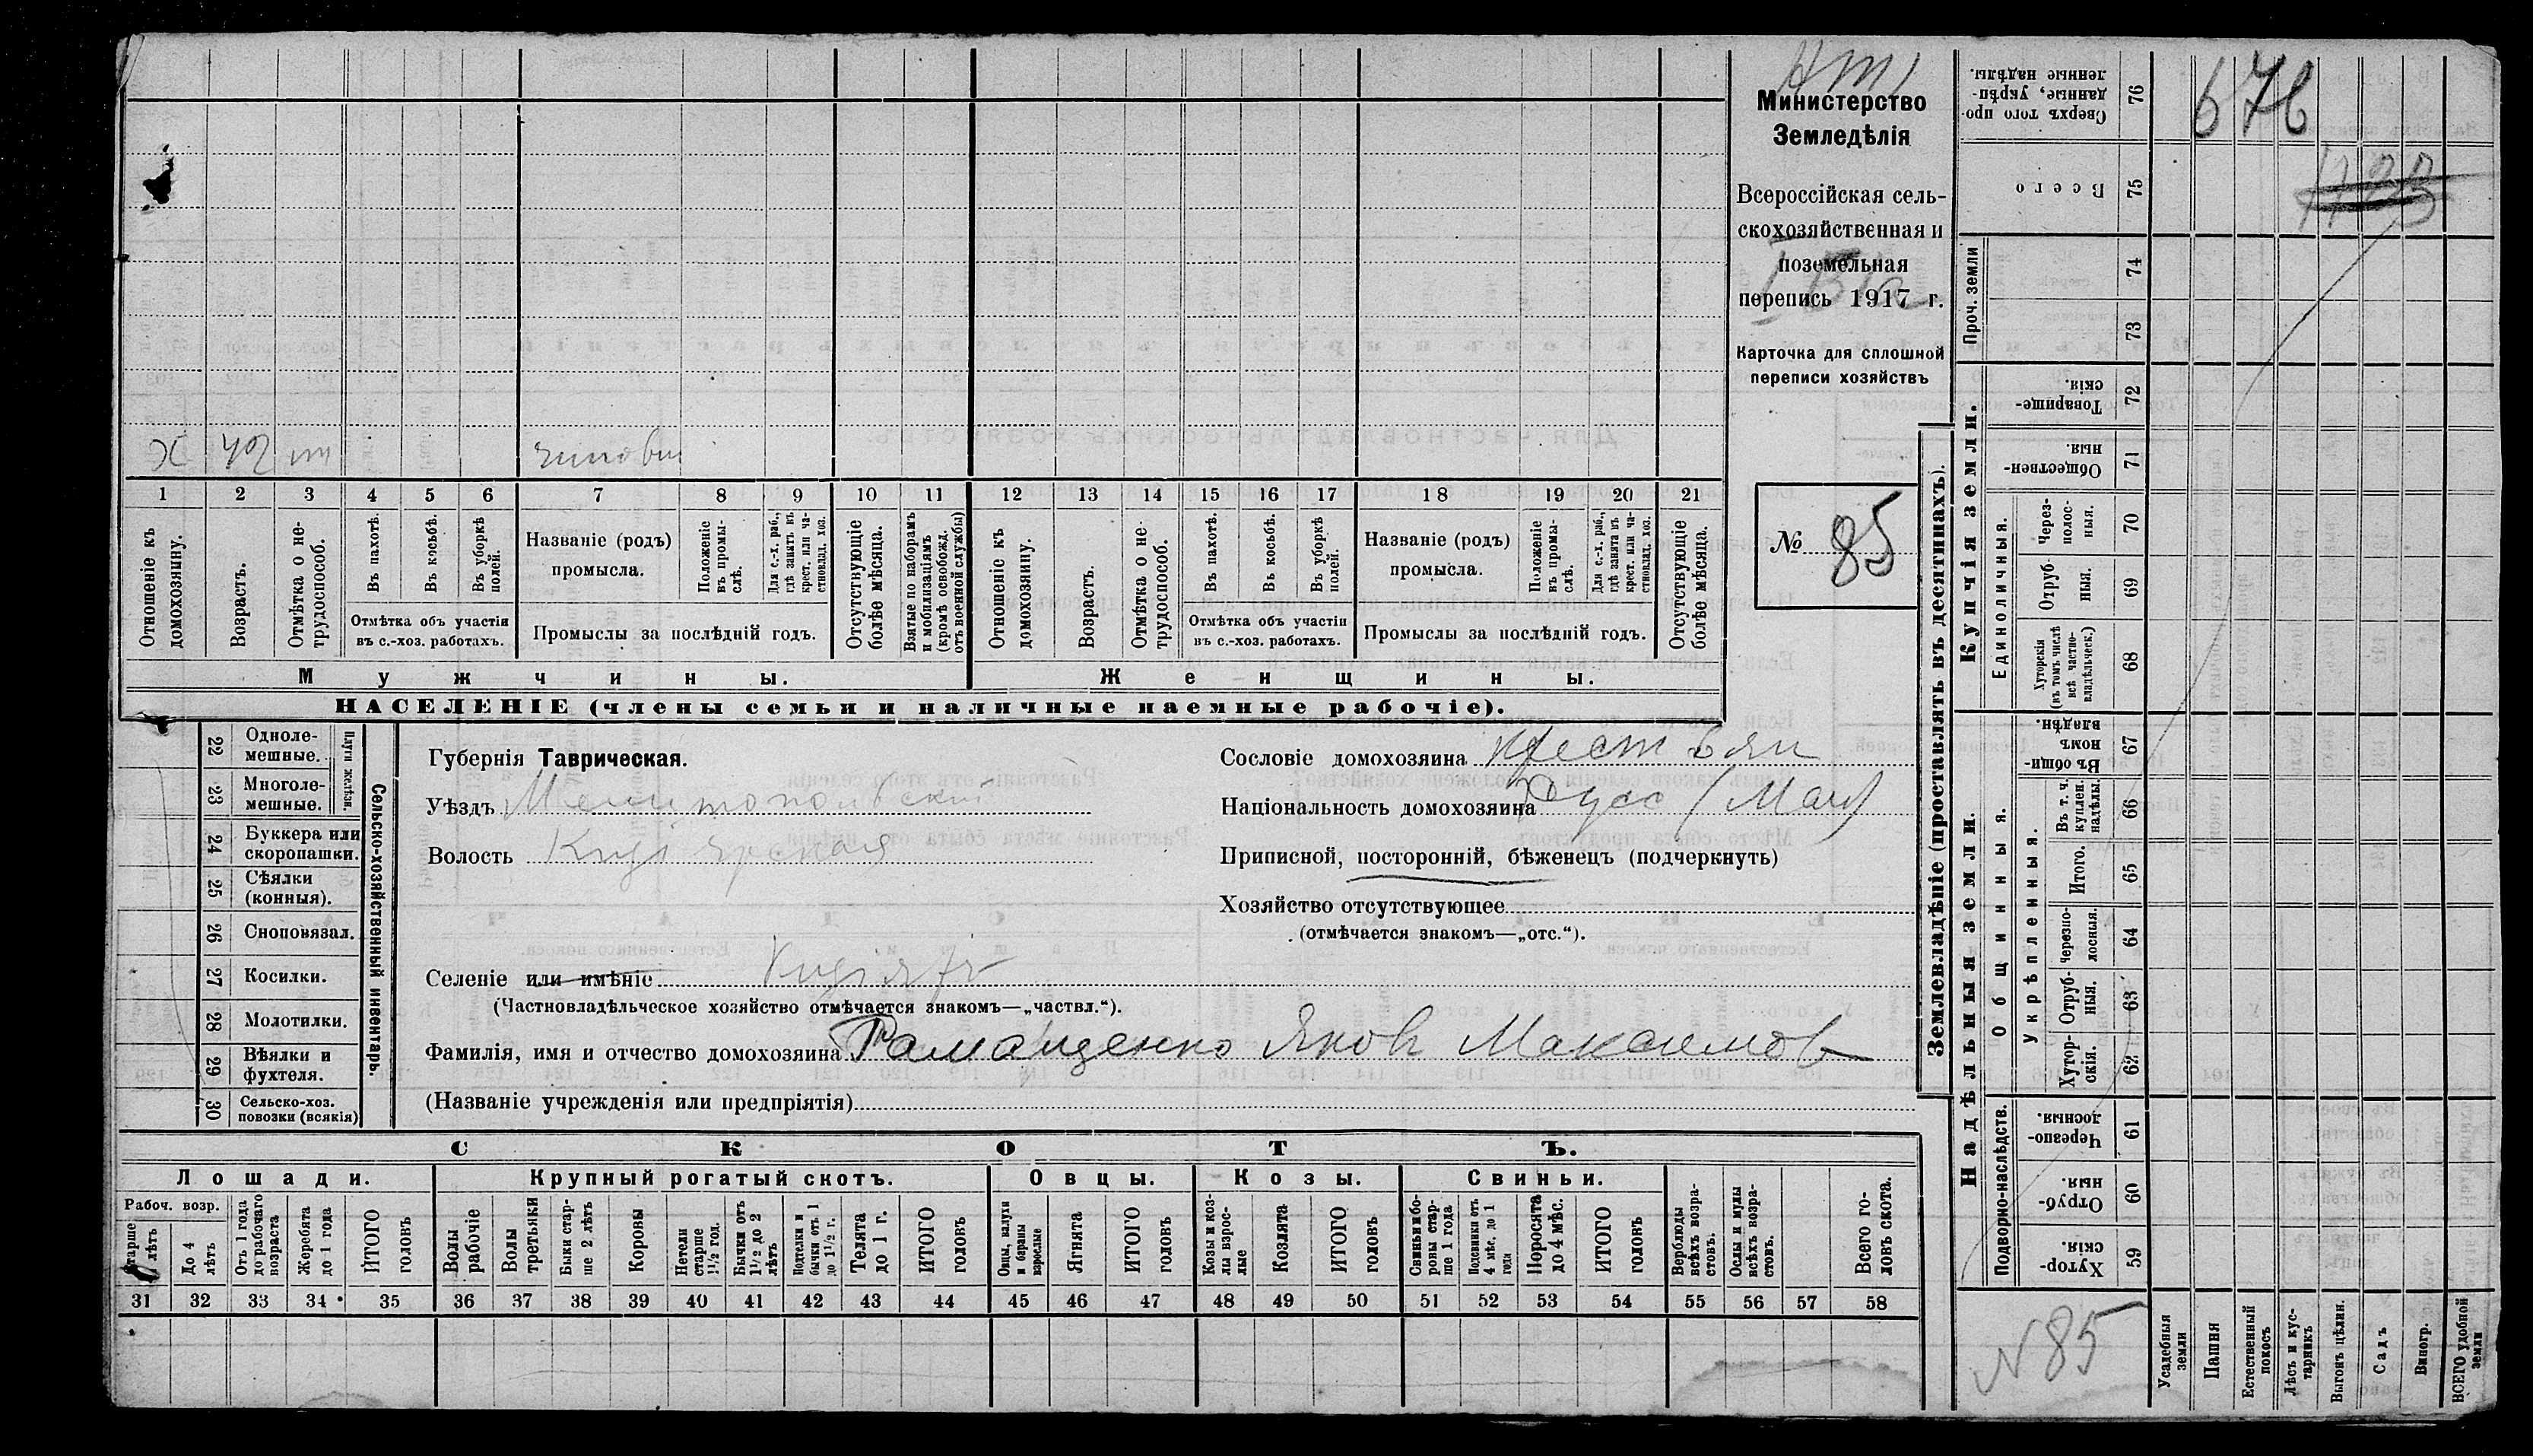 Министерство
Земледѣлія
Всероссійская сель-
скохозяйственная и
поземельная
перепись 1917 г.
Карточка для сплошной
переписи хозяйствъ
№ 85
Х 42
1 2 3 4 5 6 7 8 9 10 11 12 13 14 15 16 17 18 19 20 21
Отношеніе къ домохозяину.
Возрастъ.
Отмѣтка о не-трудоспособ.
Въ пахотѣ.
Въ косьбѣ.
Въ уборкѣ полей.
Отмѣтка объ участіи въ с.-хоз. работахъ.
Названіе (родъ) промысла.
Положеніе въ промы-слѣ.
Для с.-х. раб., гдѣ занятъ въ крест. или ча-стновлад. хоз.
Промыслы за послѣдній годъ.
Отсутствующіе болѣе мѣсяца.
Взятые по наборамъ и мобилизаціямъ (кромѣ освобожд. отъ военной службы)
Отношеніе къ домохозяину.
Возрастъ.
Отмѣтка о не трудоспособ.
Въ пахотѣ.
Въ косьбѣ.
Въ уборкѣ полей.
Отмѣтка объ участіи въ с.-хоз. работахъ.
Названіе (родъ) промысла.
Положеніе въ промы-слѣ.
Для с.-х. раб., гдѣ занята въ крест. или ча-стновлад. хоз.
Промыслы за послѣдній годъ.
Отсутствующіе болѣе мѣсяца.
Мужчины.
Женщины.
НАСЕЛЕНІЕ (члены семьи и наличные наемные рабочіе).
22 Одноле-мешные.
23 Многоле-мешные.
Плуги желѣзн.
24 Буккера или скоропашки.
25 Сѣялки (конныя).
26 Сноповязал.
27 Косилки.
28 Молотилки.
29 Вѣялки и фухтеля.
30 Сельско-хоз. повозки (всякія)
Сельско-хозяйственный инвентарь.
Губернія Таврическая.
Уѣздъ Мелитопольскій
Волость
Селеніе или имѣніе
(Частновладѣльческое хозяйство отмѣчается знакомъ—„частвл.“).
Фамилія, имя и отчество домохозяина Рамащенко Яковъ Максимов
(Названіе учрежденія или предпріятія)
Сословіе домохозяина крестьян
Національность домохозяина Русс (Мал)
Приписной, посторонній, бѣженецъ (подчеркнуть)
Хозяйство отсутствующее
(отмѣчается знакомъ—„отс.“).
СКОТЪ.
Лошади.
Крупный рогатый скотъ.
Овцы.
Козы.
Свиньи.
Рабоч. возр.
Старше лѣтъ
До 4 лѣтъ
Отъ 1 года до рабочаго возраста
Жеребята до 1 года
ИТОГО головъ
Волы рабочіе
Волы третьяки
Быки стар-ше 2 лѣтъ
Коровы
Нетели старше 1½ год.
Бычки отъ 1½ до 2 лѣтъ
Подтелки и бычки отъ 1 до 1½ г.
Телята до 1 г.
ИТОГО головъ
Овцы, валухи и бараны взрослые
Ягнята
ИТОГО головъ
Козы и коз-лы взрос-лые
Козлята
ИТОГО головъ
Свиньи бо-ровы стар-ше 1 года
Подсвинки отъ 4 мѣс. до 1 года
Поросята до 4 мѣс.
ИТОГО головъ
Верблюды всѣхъ возра-стовъ.
Ослы и мулы всѣхъ возра-стовъ.
Всего го-ловъ скота.
31 32 33 34 35 36 37 38 39 40 41 42 43 44 45 46 47 48 49 50 51 52 53 54 55 56 57 58
Землевладѣніе (проставлять въ десятинахъ).
Купчія земли.
Надѣльныя земли.
Проч. земли
Единоличныя.
Общинныя.
Укрѣпленныя.
Подворно-наслѣдств.
Сверхъ того про-данные, укрѣп-ленные надѣлы. 76
Всего 75
74
73
Товарище-скія. 72
Обществен-ныя 71
Через-полос-ныя. 70
Отруб-ныя. 69
Хуторскія (въ томъ числѣ всѣ частно-владѣльческ.) 68
Въ общи-номъ владѣн. 67
Въ т. ч. куплен. надѣлы. 66
Итого. 65
Черезпо-лосныя. 64
Отруб-ныя. 63
Хутор-скія. 62
Черезпо-лосныя. 61
Отруб-ныя. 60
Хутор-скія. 59
676
1723
N 85
Усадебныя земли
Пашня
Естественный покосъ
Лѣсъ и кус-тарникъ
Выгонъ цѣлин.
Садъ
Виногр.
ВСЕГО удобной земли